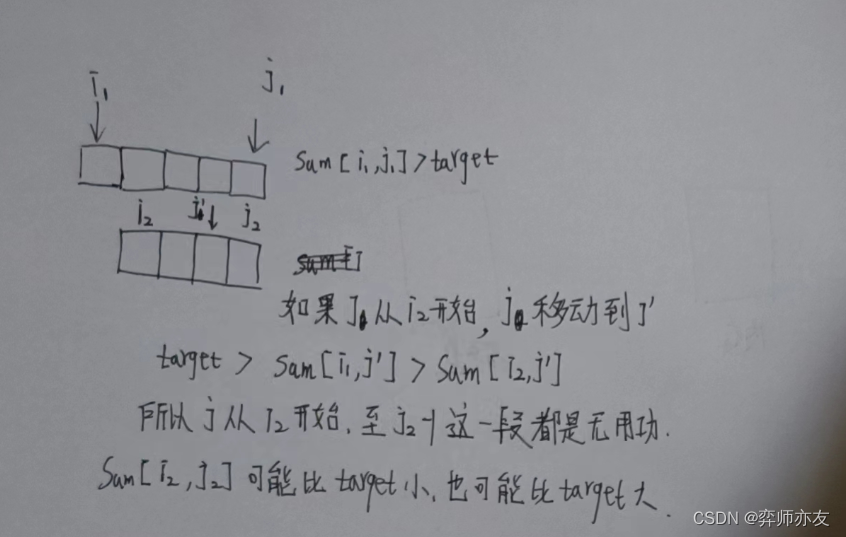 i₁ j₁
Sum[i₁,j₁]>target
i₂ j' j₂
如果j从i₂开始,j移动到j'
target > Sum[i₁,j'] > Sum[i₂,j']
所以j从i₂开始.至j₂-1这一段都是无用功.
Sum[i₂,j₂]可能比target小.也可能比target大.
CSDN @弈师亦友